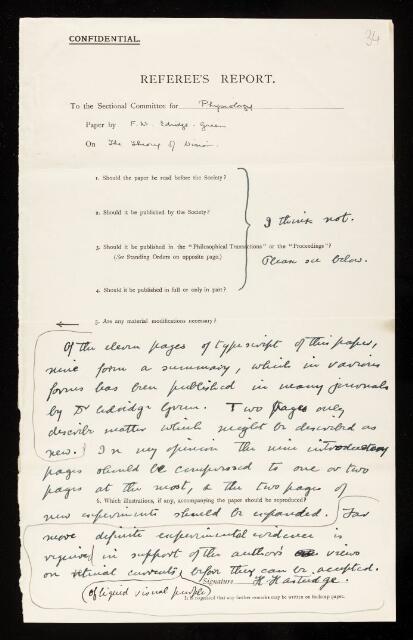 34
CONFIDENTIAL.
REFEREE'S REPORT.
To the Sectional Committee for Physiology
Paper by F. W. Edridge-Green
On The Theory of Vision.
1. Should the paper be read before the Society?
2. Should it be published by the Society?
I think not.
3. Should it be published in the "Philosophical Transactions" or the "Proceedings"?
(See Standing Orders on opposite page.)
Please see below.
4. Should it be published in full or only in part?
5. Are any material modifications necessary?
Of the eleven pages of typescript of this paper,
nine form a summary, which in various
forms has been published in many journals
by Dr Edridge Green. Two pages only
describe matter which might be described as
new. In my opinion the nine introductory
pages should be compressed to one or two
pages at the most, & the two pages of
6. Which illustrations, if any, accompanying the paper should be reproduced?
new experiments should be expanded. Far
more definite experimental evidence is
required in support of the author's views
on retinal currents, before they can be accepted.
Signature H. Hartridge.
(of liquid visual purple)
It is requested that any further remarks may be written on foolscap paper.